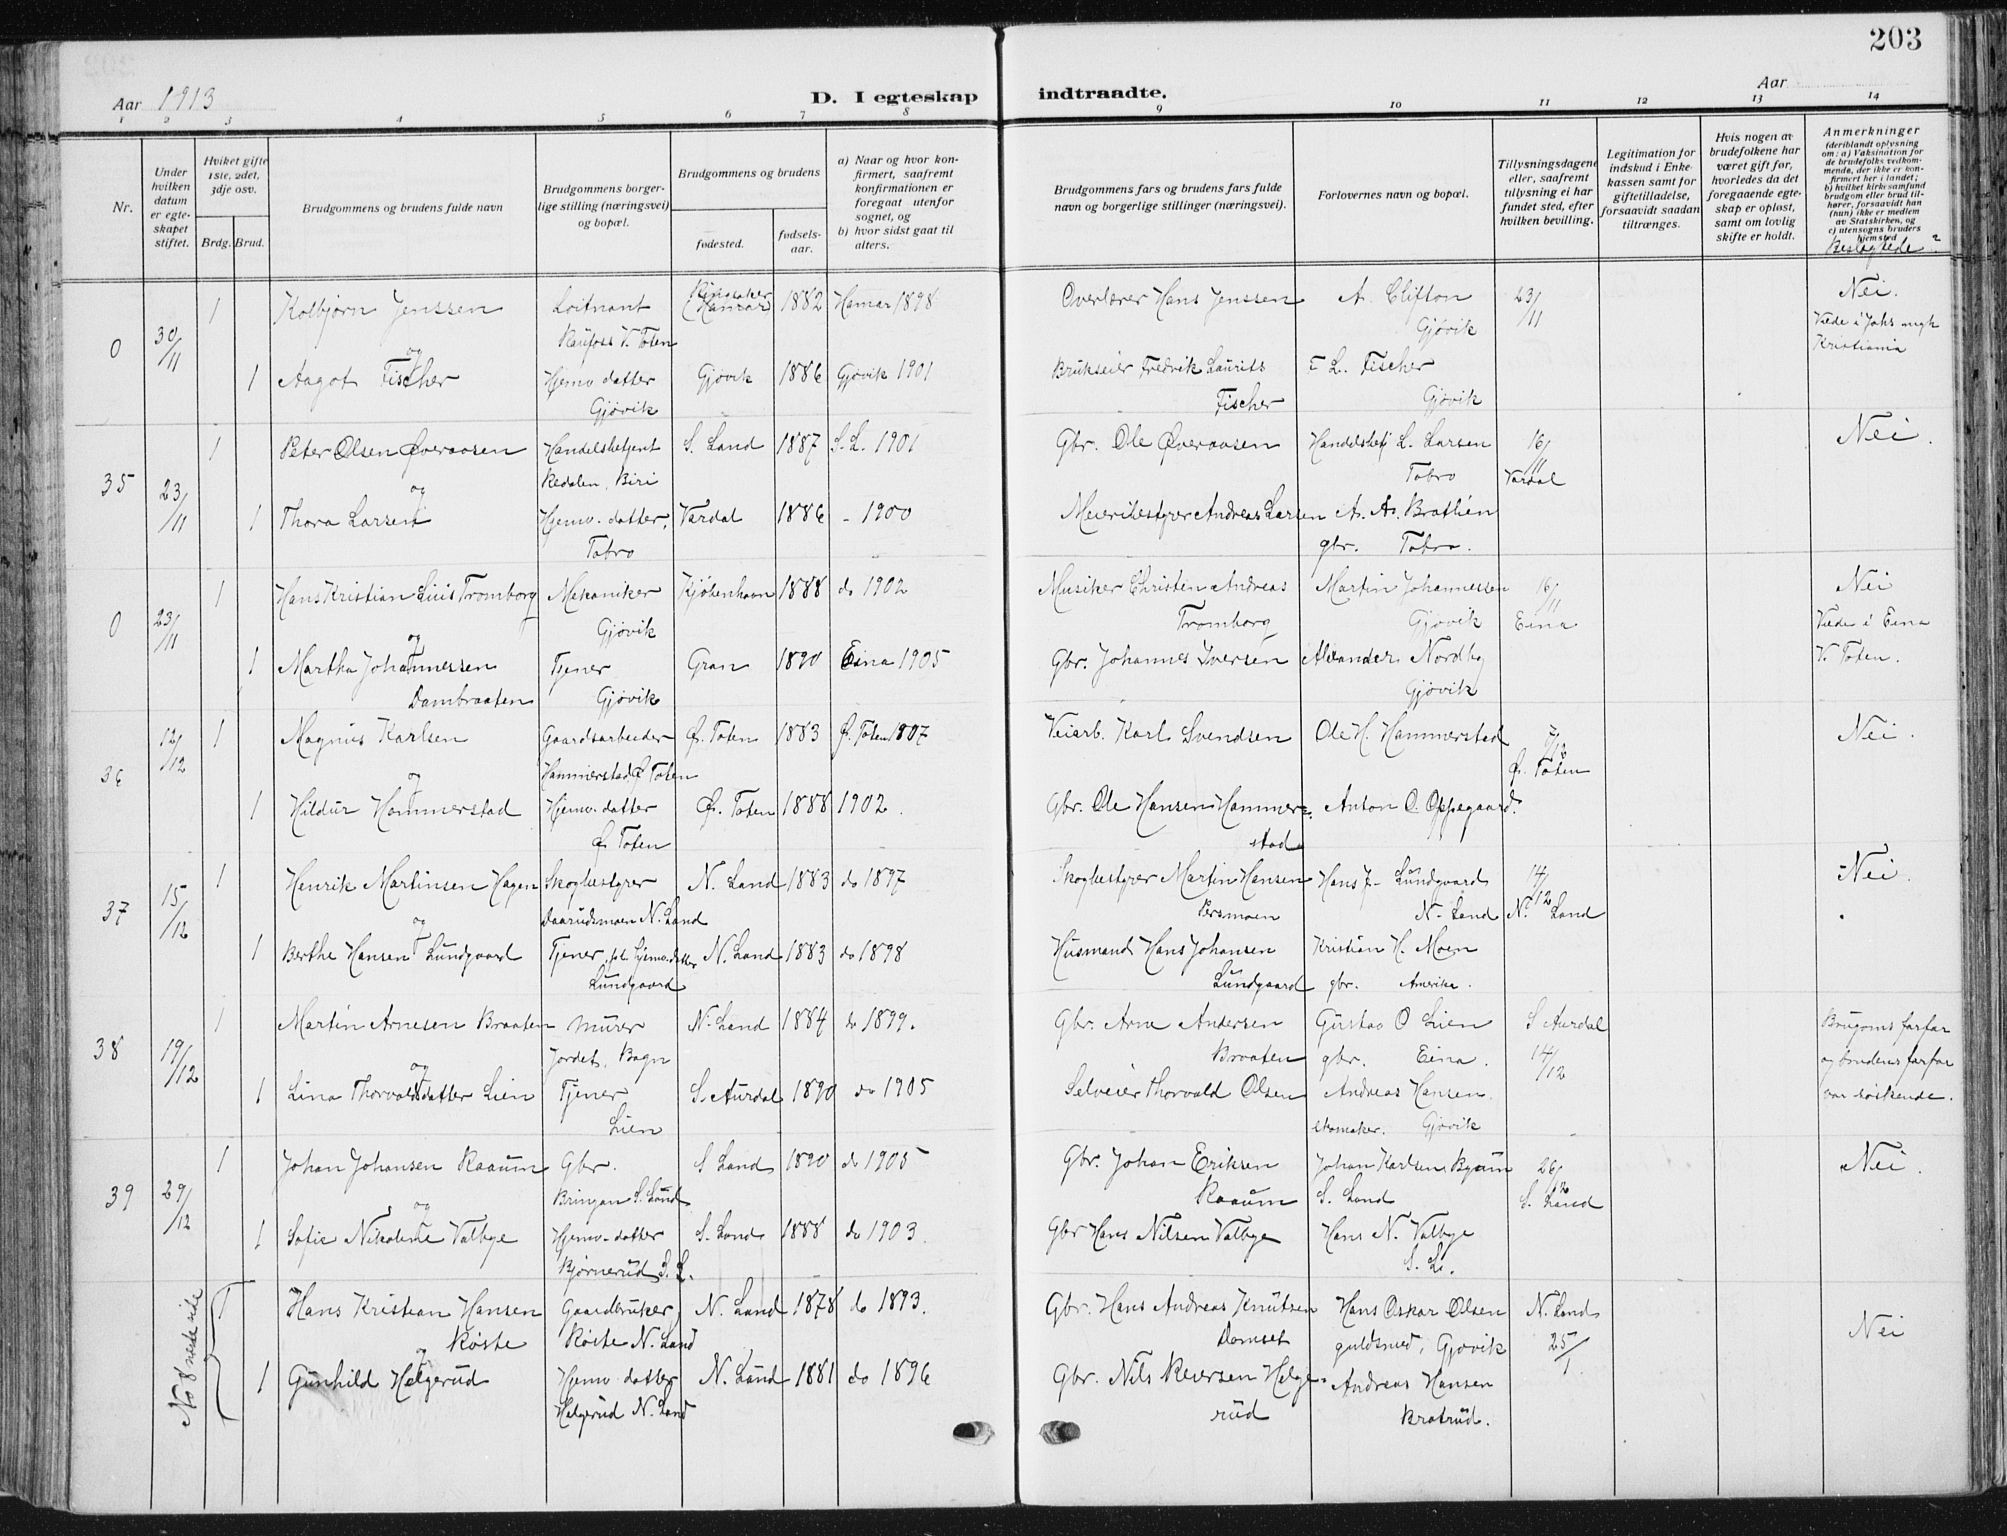 203
Aar 1913
D. I egteskap
indtraadte.
Aar
1 2 3 4 5 6 7 8 9 10 11 12 13 14
Nr.
Under hvilken datum er egteskapet stiftet.
Hvilket gifte 1ste, 2det, 3dje osv.
Brdg. Brud.
Brudgommens og brudens fulde navn
Brudgommens borgerlige stilling (næringsvei) og bopæl.
Brudgommens og brudens
fødested.
fødselsaar.
a) Naar og hvor konfirmert, saafremt konfirmationen er foregaat utenfor sognet, og
b) hvor sidst gaat til alters.
Brudgommens fars og brudens fars fulde navn og borgerlige stillinger (næringsvei).
Forlovernes navn og bopæl.
Tillysningsdagene eller, saafremt tillysning ei har fundet sted, efter hvilken bevilling.
Legitimation for indskud i Enkekassen samt for giftetilladelse, forsaavidt saadan tiltrænges.
Hvis nogen av brudefolkene har været gift før, hvorledes da det foregaaende egteskap er opløst, samt om lovlig skifte er holdt.
Anmerkninger
(deriblandt oplysning om: a) Vaksination for de brudefolks vedkommende, der ikke er konfirmert her i landet; b) hvilket kirkesamfund brudgom eller brud tilhører, forsaavidt han (hun) ikke er medlem av Statskirken, og c) utensogns bruders hjemsted
Beslegtede?
0 30/11 1 Kolbjørn Jenssen Loitnant Ringsaker 1882 Hamar 1898 Overlærer Hans Jenssen A. Clifton 23/11 Nei.
Raufoss V. Toten (Hamar) Gjøvik Viede i Johs mgh
og Kristiania
1 Aagot Fischer Hjemv datter Gjøvik 1886 Gjøvik 1901 Brukseier Fredrik Laurits L. Fischer
Gjøvik Fischer Gjøvik
35 23/11 1 Peter Olsen Øveraasen Handelsbetjent S. Land 1887 S. L. 1901 Gbr. Ole Øveraasen Handelsbetj L. Larsen 16/11 Nei.
Redalen, Biri Tobro Vardal
og
1 Thora Larsen Hjemv. datter, Vardal 1886 - 1900 Meieribestyrer Andreas Larsen A. A. Brathien
Tobro gbr. Tobro.
0 23/11 1 Hans Kristian Luis Tromborg Mekaniker Kjøbenhavn 1888 do 1902 Musiker Christen Andreas Martin Johannessen 16/11 Nei
Gjøvik Tromborg Gjøvik Eina Viede i Eina
og V. Toten.
1 Martha Johannessen Tjener Gran 1890 Eina 1905 Gbr. Johannes Iversen Alexander Nordby
Dambraaten Gjøvik Gjøvik
36 12/12 1 Magnus Karlsen Gaardsarbeider Ø. Toten 1883 Ø. Toten 1897 Veiarb. Karl Svendsen Ole H. Hammerstad 7/12 Nei.
Hammerstad Ø Toten Ø. Toten
og
1 Hildur Hammerstad Hjemv. datter Ø. Toten 1888 1902. Gbr. Ole Hansen Hammer- Anton O. Oppegaard.
Ø. Toten stad
37 15/12 1 Henrik Martinsen Hagen Skogbestyrer N. Land 1883 do 1897 Skogbestyrer Martin Hansen Hans J- Lundgaard 14/12 Nei.
Daarudsmoen N. Land Persmoen N- Land N. Land
og
1 Berthe Hansen Lundgaard Tjener, Hjemv.datter N. Land 1883 do 1898 Husmand Hans Johansen Kristian H. Moen
Lundgaard Lundgaard gbr. Amerika.
38 19/12 1 Martin Arnesen Braaten Murer N. Land 1884 do 1899. Gbr. Arne Andersen Gustav O Lien S Aurdal Brugoms farfar
Jordet, Bagn Braaten gbr. Eina. 14/12 og brudens farfar
og var søskende.
1 Lina Thorvaldsdatter Lien Tjener S. Aurdal 1890 do 1905 Selveier Thorvald Olsen Andreas Hansen
Lien skomaker. Gjøvik
39 29/12 1 Johan Johansen Raaum Gbr. S Land 1890 do 1905 Gbr. Johan Eriksen Johan Karlsen 26/12 Nei.
Bringen S. Land Raaum S. Land S. Land
og
1 Sofie Nikoline Valbye Hjemv-datter S. Land 1888 do 1903. Gbr Hans Nilsen Valbye Hans N. Valbye
Bjørnerud S. L. S. L.
No 8 neste side 1 Hans Kristian Hansen Gaardbruker N. Land 1878 do 1893. Gbr. Hans Andreas Knutsen Hans Oskar Olsen N. Land Nei
Røste Røste N. Land Domset guldsmed, Gjøvik 25/1
og
1 Gunhild Helgerud Hjemv datter N. Land 1881 do 1896 Gbr. Nils Reversen Helge- Andreas Hansen
Helgerud N. Land rud Bratrud.